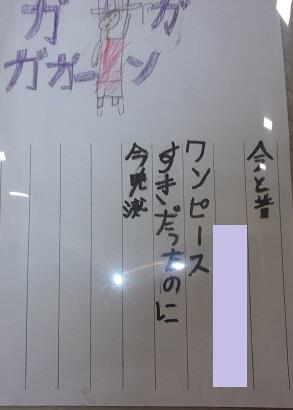 ガ ガ
ガガーン
今と昔
ワンピース
すきだったのに
今